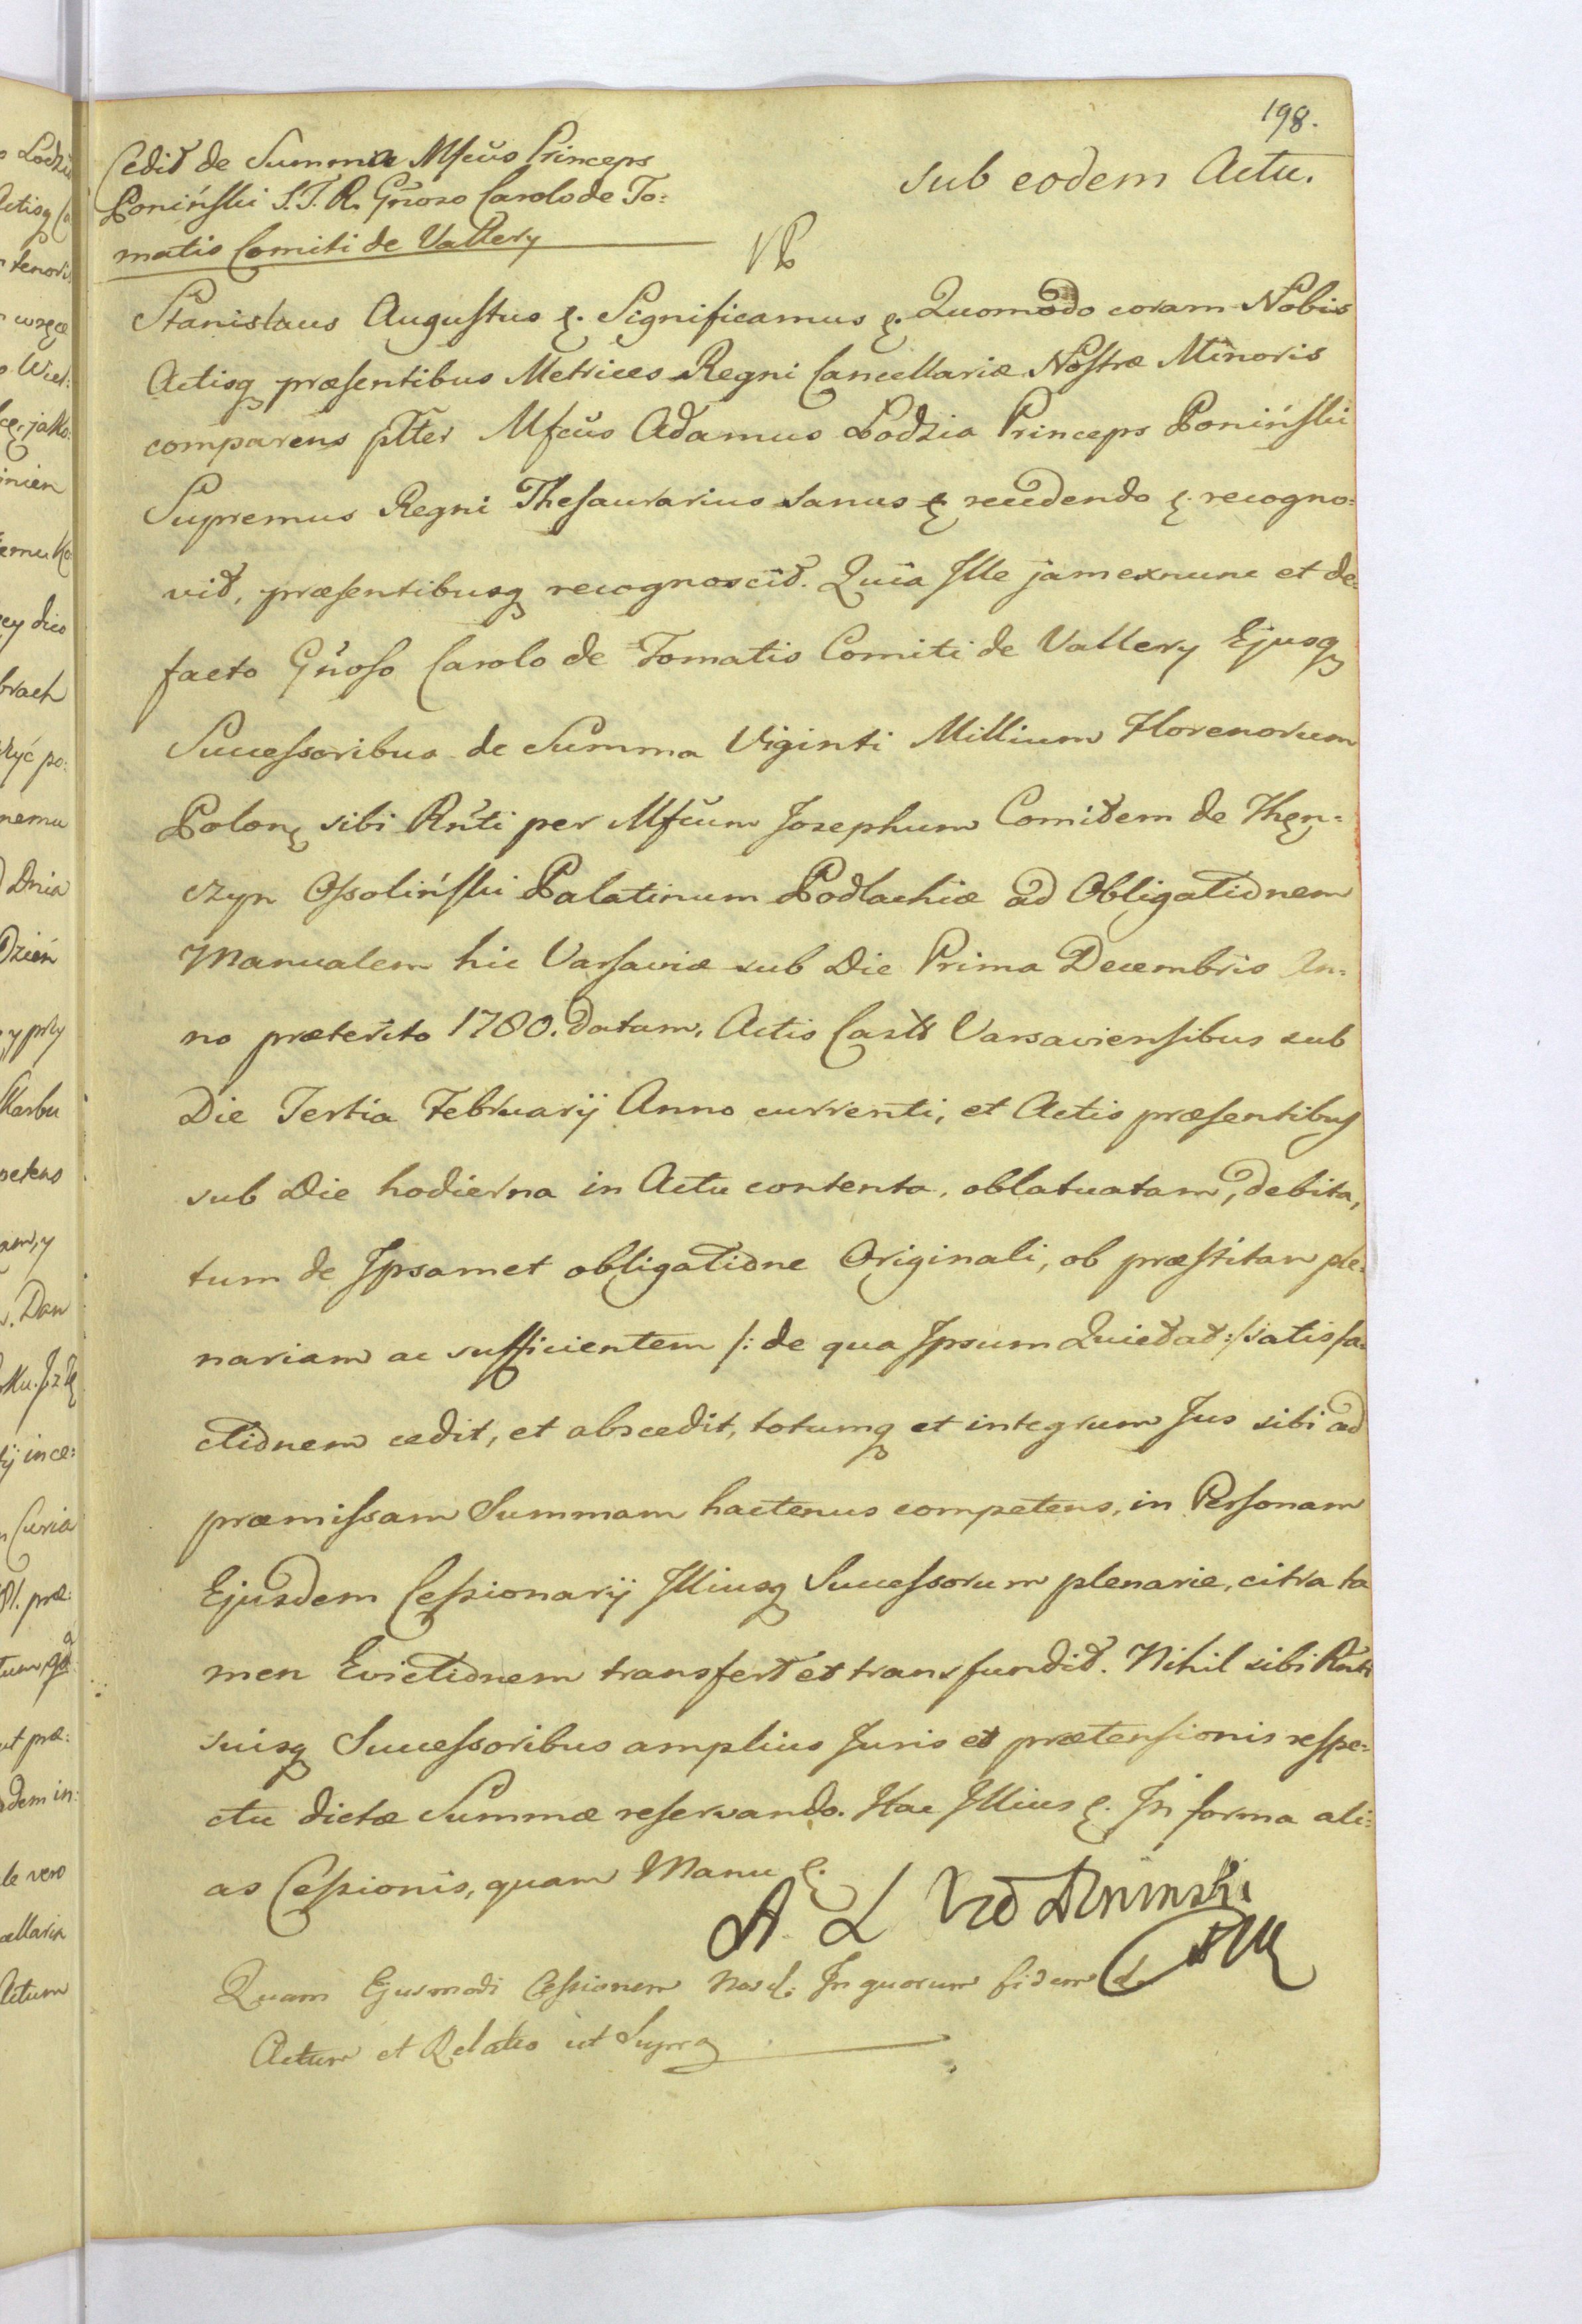 198.
Cedit de Summa Mfcus Princeps
Poniński S. T. R. Gnoso Carolo de To:
matis Comiti de Vallery
sub eodem Actu.
Stanislaus Augustus &. Significamus &. Quomodo coram Nobis
Actisq præsentibus Metrices Regni Cancellariæ Nostræ Minoris
comparens pltter Mfcus Adamus Lodzia Princeps Poniński
Supremus Regni Thesaurarius sanus & recedendo &. recogno:
vit, præsentibusq recognoscit. Quia Ille jam exnunc et de
facto Gnoso Carolo de Tomatis Comiti de Vallery Ejusq
Successoribus de Summa Viginti Millium Florenorum
Polon sibi Rnti per Mfcum Josephum Comitem de Thęn:
czyn Ossoliński Palatinum Podlachiæ ad Obligationem
Manualem hic Varsaviæ sub Die Prima Decembris An:
no præterito 1780. datam, Actis Castr Varsaviensibus sub
Die Tertia Februarij Anno currenti, et Actis præsentibus
sub Die hodierna in Actu contenta, oblatuatam, debita,
tum de Ipsamet obligatione Originali, ob præstitam ple:
nariam ac sufficientem /: de qua Ipsum Quietat :/ satisfa:
ctionem cedit, et abscedit, totumq et integrum Jus sibi ad
præmissam Summam hactenus competens, in Personam
Ejusdem Cessionarij Illiusq Successorum plenarie, citra ta
men Evictionem transfert et transfundit. Nihil sibi Rnti
suisq Successoribus amplius Juris et prætensionis respe:
ctu dictæ Summæ reservando. Hac Illius &. In forma ali:
as Cessionis, quam Manu &.
A L Poninski
Quam Ejusmodi Cessionem Nos &. In quorum fidem &.
Actum et Relatio ut Supra